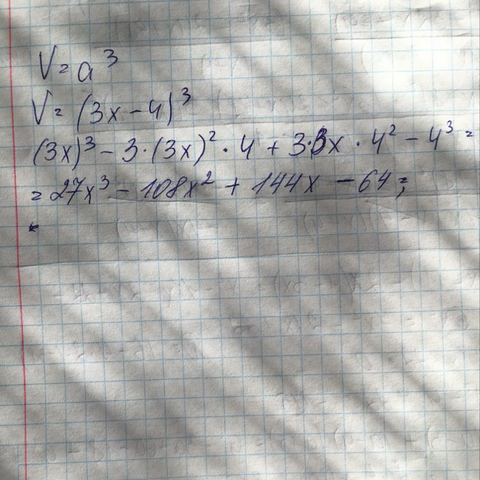 V = a³
V = (3x - 4)³
(3x)³ - 3·(3x)²·4 + 3·3x·4² - 4³ =
= 27x³ - 108x² + 144x - 64;